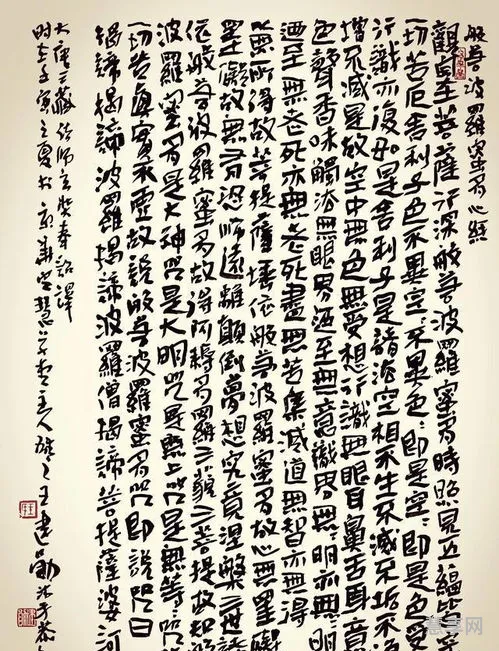 般若波羅蜜多心經
觀自在菩薩行深般若波羅蜜多時照見五蘊皆
一切苦厄舍利子色不異空、不異色、即是空、即是色受
行識亦復如是舍利子是諸法空相不生不滅不垢不
增不減是故空中無色無受想行識無眼耳鼻舌身意
色聲香味觸法無眼界乃至無意識界無、明亦無
乃至無老死亦無老死盡無苦集滅道無智亦無得
以無所得故菩提薩埵依般若波羅蜜多故心無罣礙
罣礙故無有恐怖遠離顛倒夢想究竟涅槃三世諸
依般若波羅蜜多故得阿耨多羅三藐三菩提故知般
波羅蜜多是大神咒是大明咒是無上咒是無等、咒
一切苦真實不虛故說般若波羅蜜多咒即說咒曰
揭諦揭諦波羅揭諦波羅僧揭諦菩提薩婆訶
大唐三藏法師玄奘奉詔譯
時在壬寅之夏於京華主人王建勛